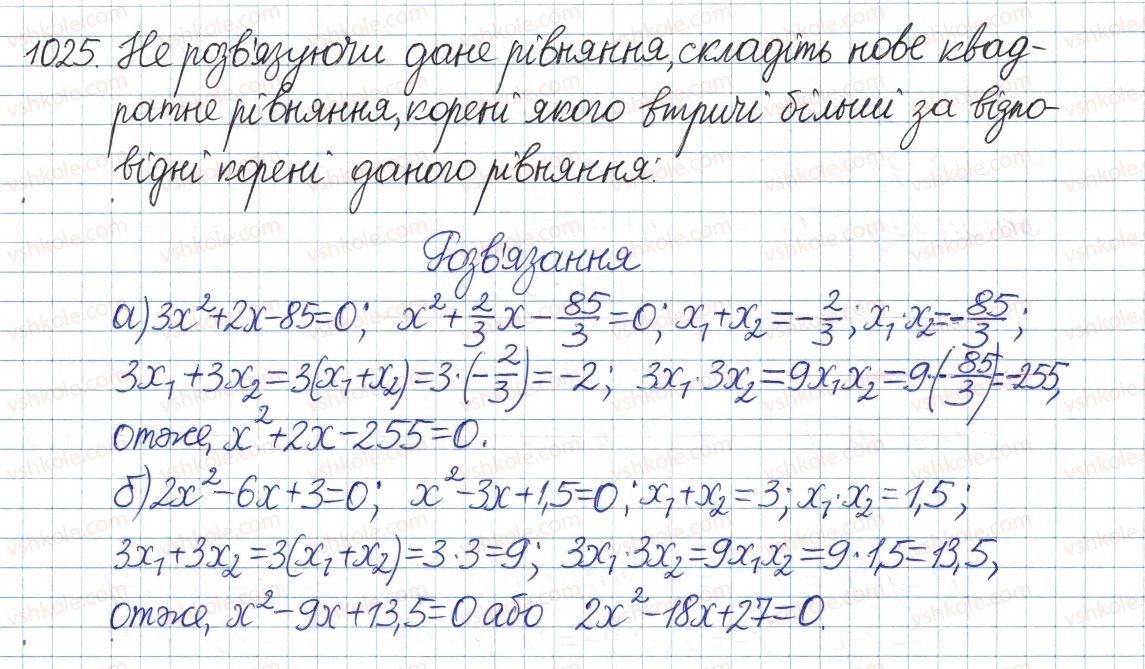 1025. Не розв'язуючи дане рівняння, складіть нове квад-
ратне рівняння, корені якого втричі більші за відпо-
відні корені даного рівняння:
Розв'язання
а) 3x²+2x-85=0; x²+2/3x-85/3=0; x₁+x₂=-2/3; x₁·x₂=-85/3;
3x₁+3x₂=3(x₁+x₂)=3·(-2/3)=-2; 3x₁·3x₂=9x₁x₂=9·(-85/3)=-255,
отже, x²+2x-255=0.
б) 2x²-6x+3=0; x²-3x+1,5=0; x₁+x₂=3; x₁·x₂=1,5;
3x₁+3x₂=3(x₁+x₂)=3·3=9; 3x₁·3x₂=9x₁x₂=9·1,5=13,5,
отже, x²-9x+13,5=0 або 2x²-18x+27=0.